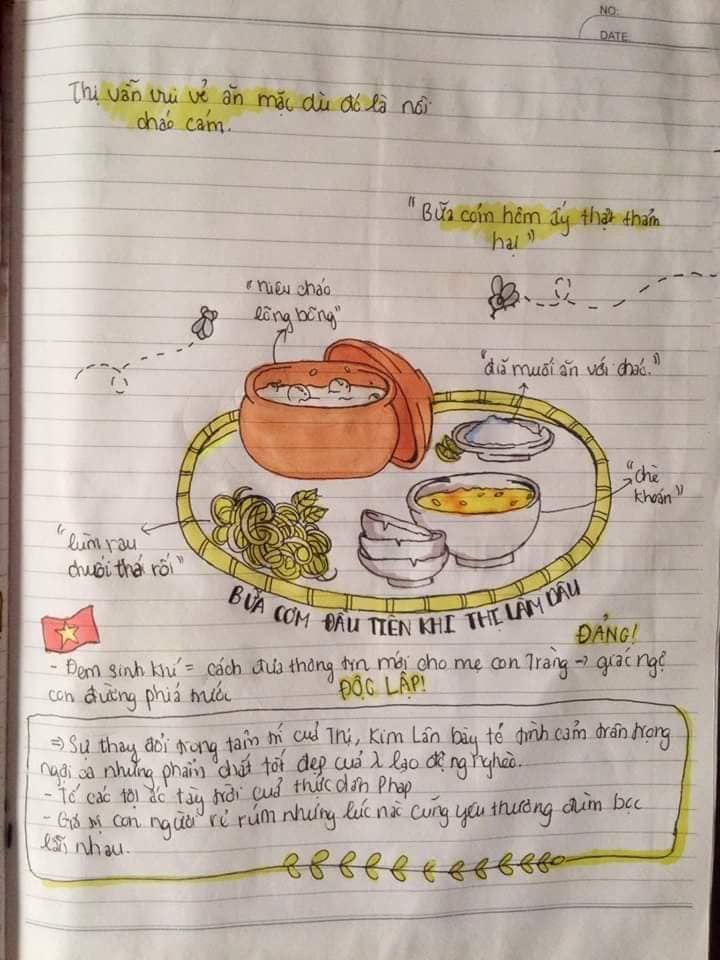 NO:
DATE:
Thị vẫn vui vẻ ăn mặc dù đó là nồi
cháo cám.
"Bữa cơm hôm ấy thật thảm
hại"
"niêu cháo
lõng bõng"
"đĩa muối ăn với cháo."
"chè
khoán"
"lùm rau
chuối thái rối"
BỮA CƠM ĐẦU TIÊN KHI THỊ LÀM DÂU
ĐẢNG!
- Đem sinh khí = cách đưa thông tin mới cho mẹ con Tràng → giác ngộ
con đường phía trước
ĐỘC LẬP!
⇒ Sự thay đổi trong tâm trí của Thị, Kim Lân bày tỏ tình cảm trân trọng
ngợi ca những phẩm chất tốt đẹp của λ lao động nghèo.
- Tố cáo tội ác tày trời của thực dân Pháp
- Giá trị con người rẻ rúm nhưng lúc nào cũng yêu thương đùm bọc
lẫn nhau.